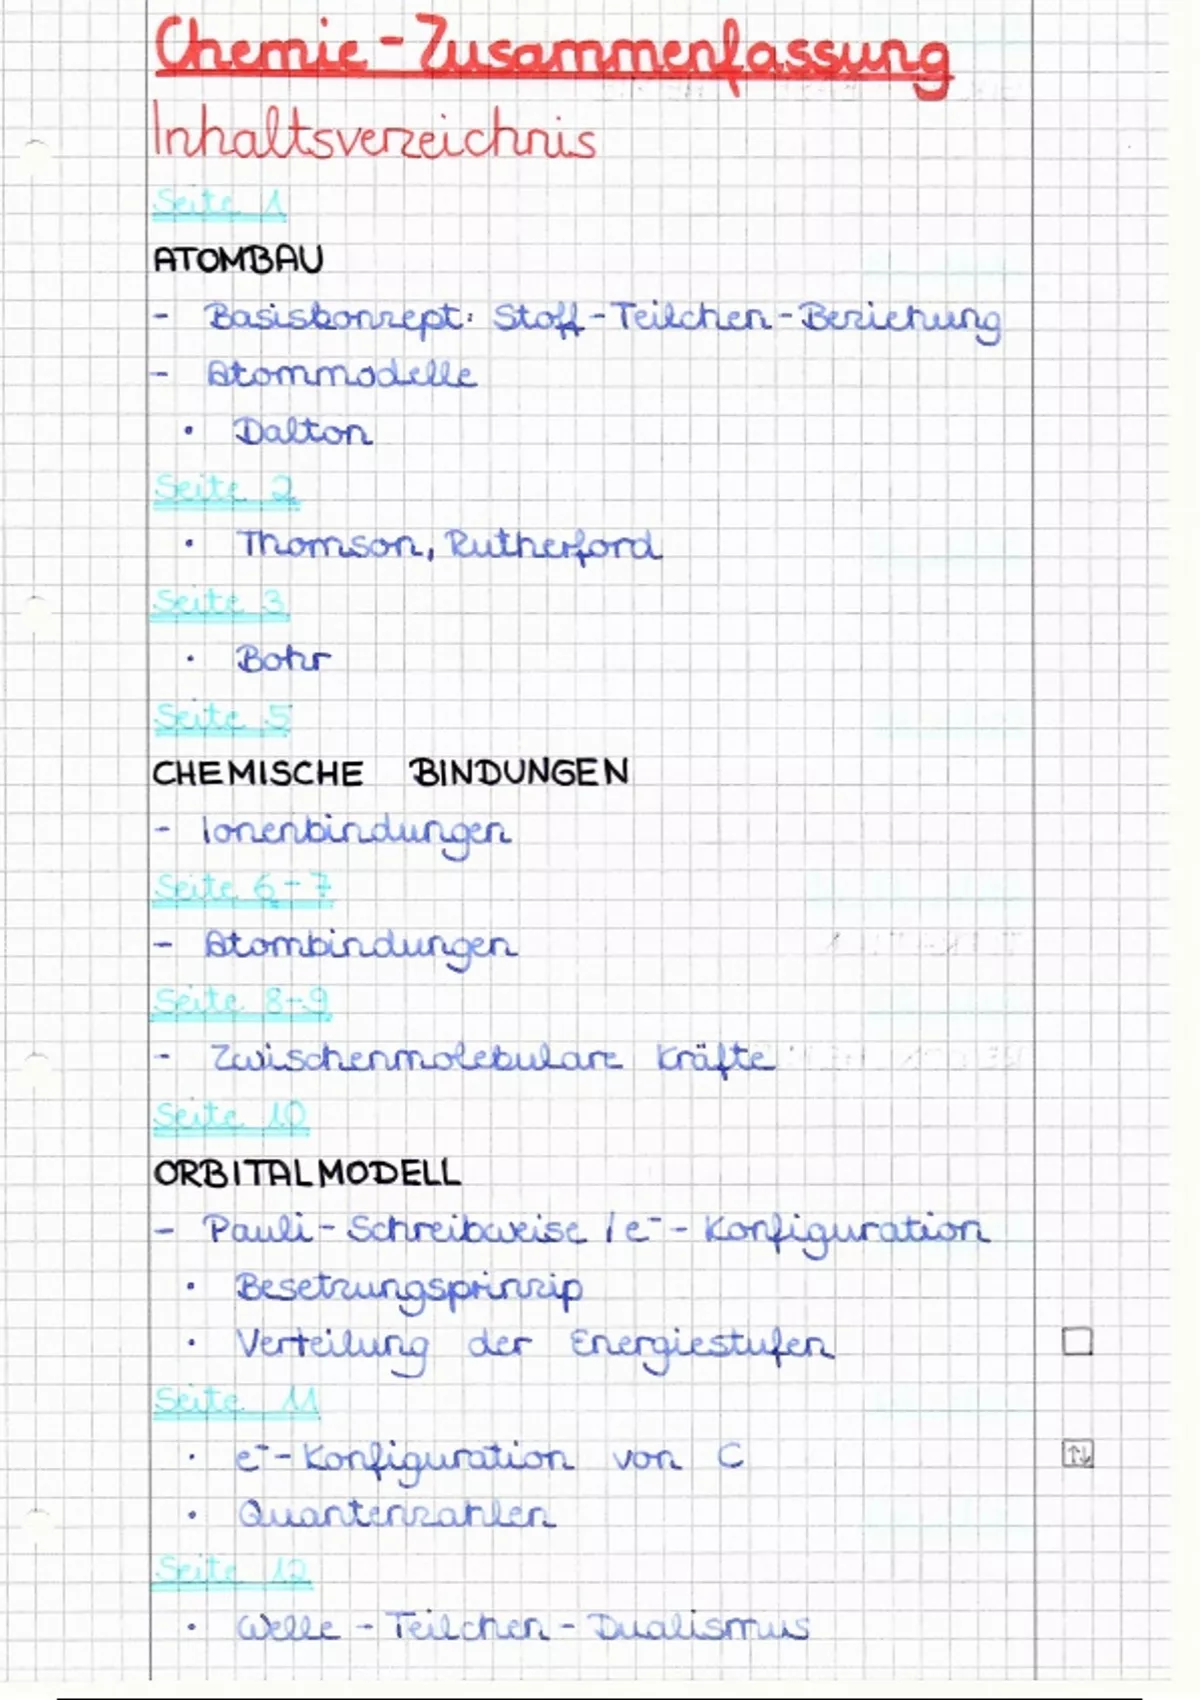 Chemie-Zusammenfassung
Inhaltsverzeichnis
Seite 1
ATOMBAU
- Basiskonzept: Stoff-Teilchen-Beziehung
- Atommodelle
• Dalton
Seite 2
• Thomson, Rutherford
Seite 3
• Bohr
Seite 5
CHEMISCHE BINDUNGEN
- Ionenbindungen
Seite 6-7
- Atombindungen
Seite 8-9
- Zwischenmolekulare Kräfte
Seite 10
ORBITALMODELL
- Pauli-Schreibweise / e⁻-Konfiguration
• Besetzungsprinzip
• Verteilung der Energiestufen
Seite 11
• e⁻-Konfiguration von C ↑↓
• Quantenzahlen
Seite 12
• Welle-Teilchen-Dualismus